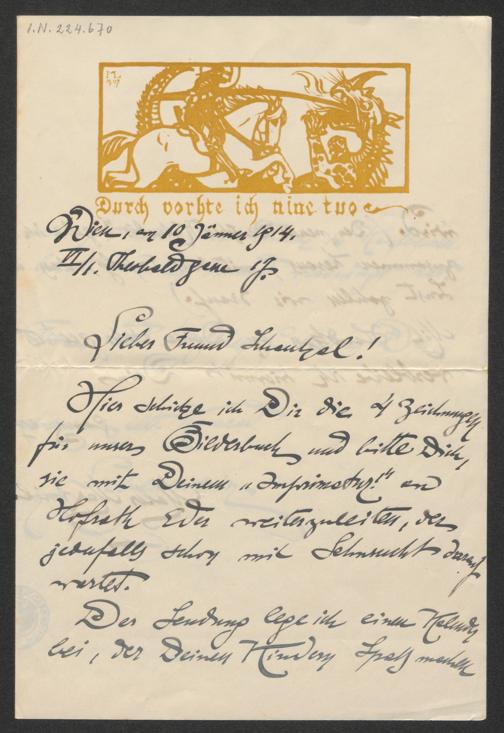 I.N. 224.670
Durch vorhte ich nine tuo
Wien, am 10 Jänner 1914.
VI/1. Theobaldgasse
Lieber Freund
Hier schicke ich Dir die 4 Zeichnungen
für unser Bilderbuch und bitte Dich,
sie mit Deinem „Imprimatur!" an
Hofrath Eder weiterzuleiten, der
jedenfalls schon mit Sehnsucht darauf
wartet.
Der Sendung lege ich einen Kalender
bei, der Deinen Kindern Spaß machen